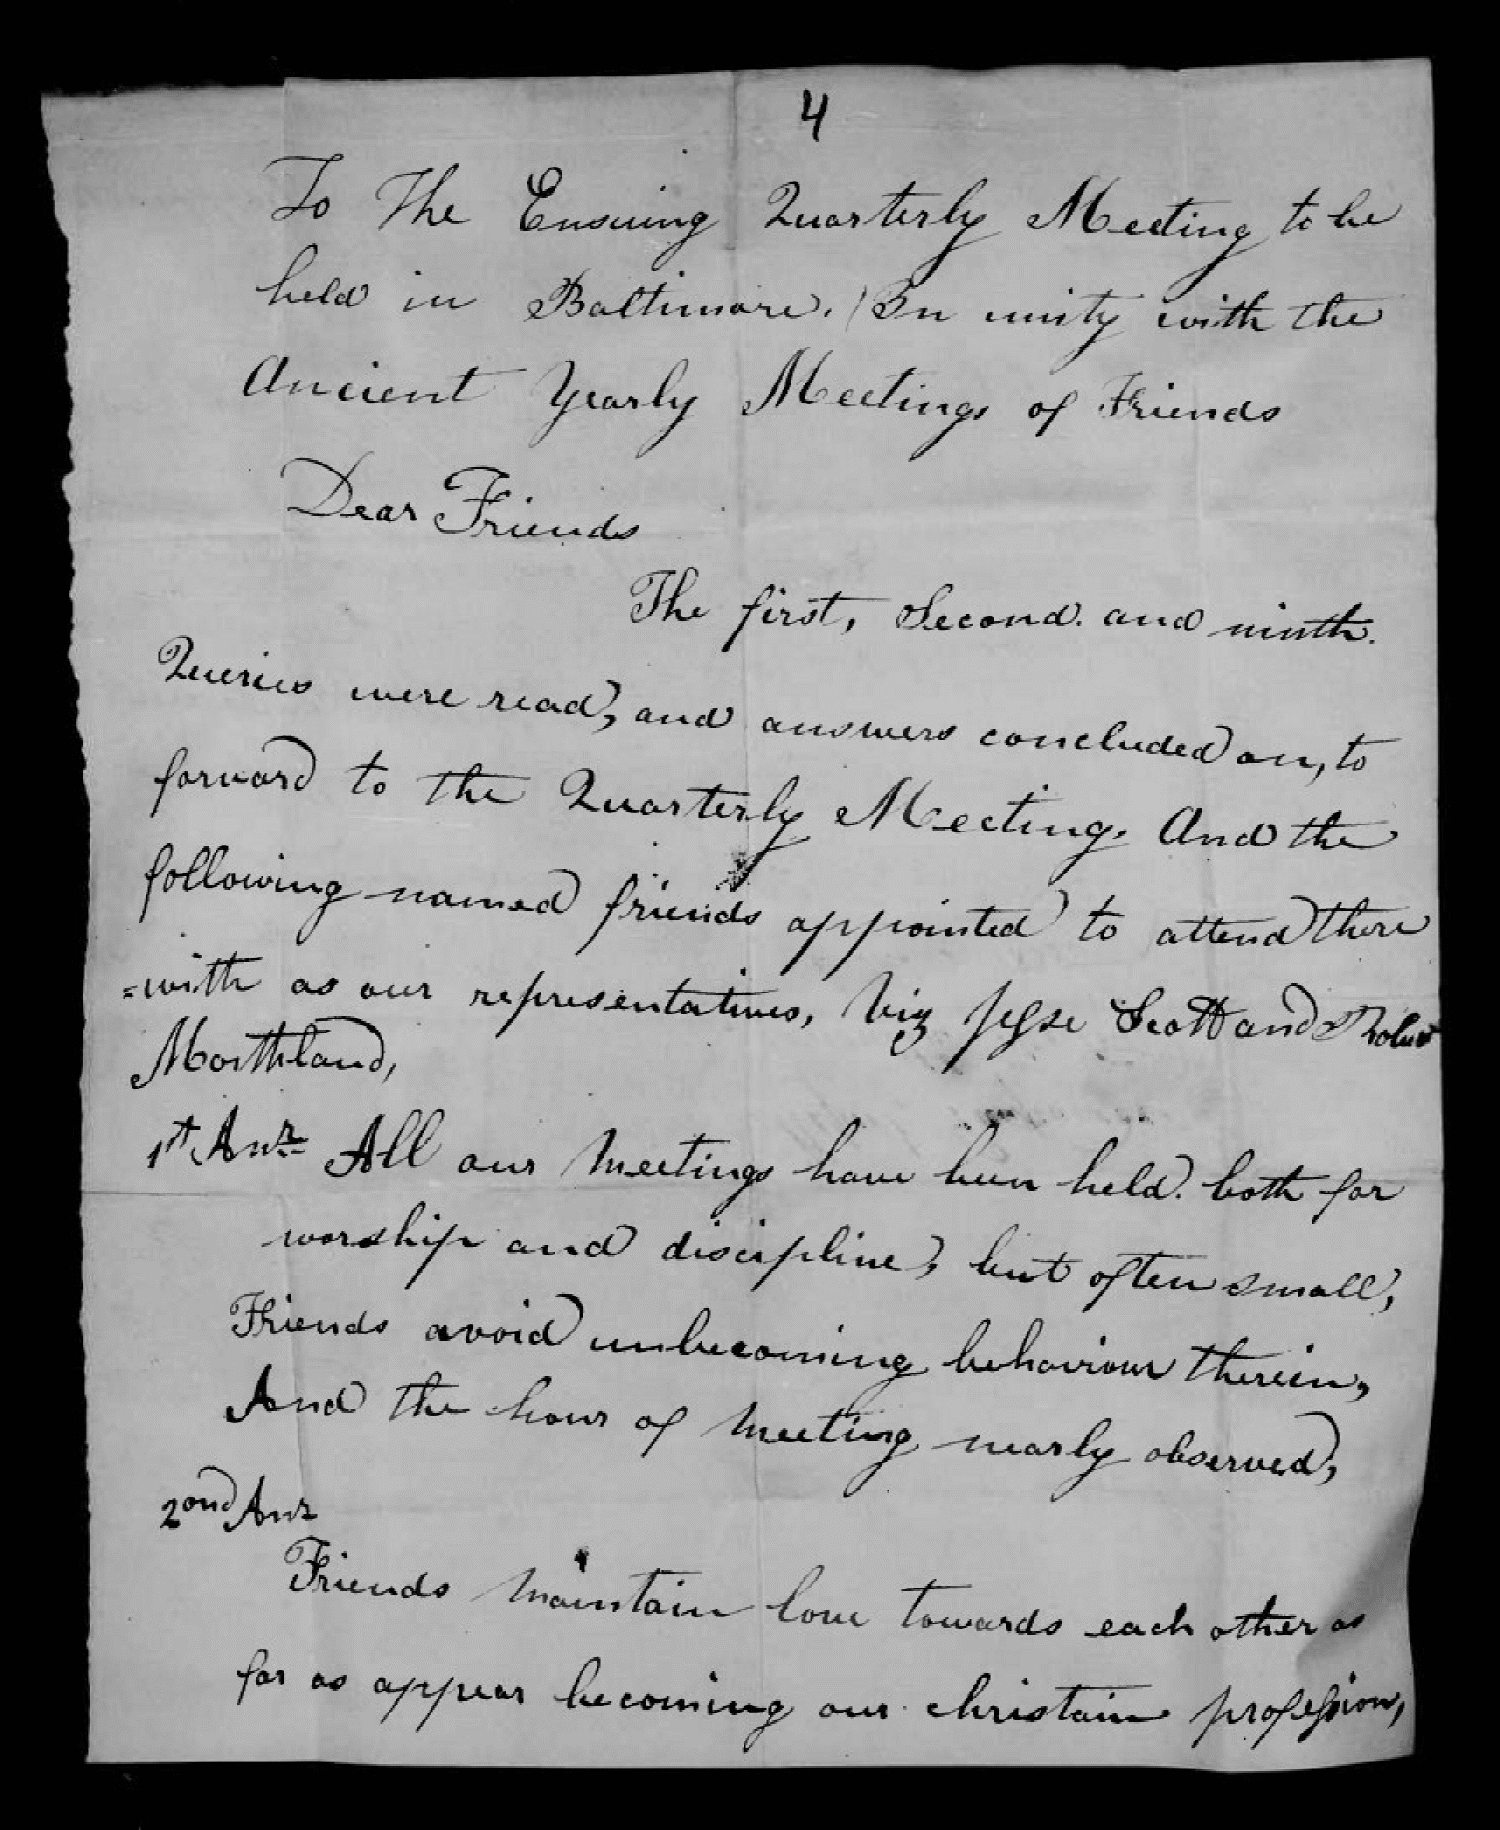 4
To The Ensuing Quarterly Meeting to be
held in Baltimore. (In unity with the
Ancient Yearly Meetings of Friends
Dear Friends
The first, Second. and ninth.
Queries were read, and answers concluded on, to
forward to the Quarterly Meeting. And the
following named friends appointed to attend there
=with as our representatives, Viz Jesse Scott and Robert
Morthland,
1st Anr. All our Meetings have been held. both for
worship and discipline, but often small,
Friends avoid unbecoming behaviour therein,
And the hour of Meeting nearly observed,
2ond Anr
Friends Maintain love towards each other as
far as appear becoming our christain profession,